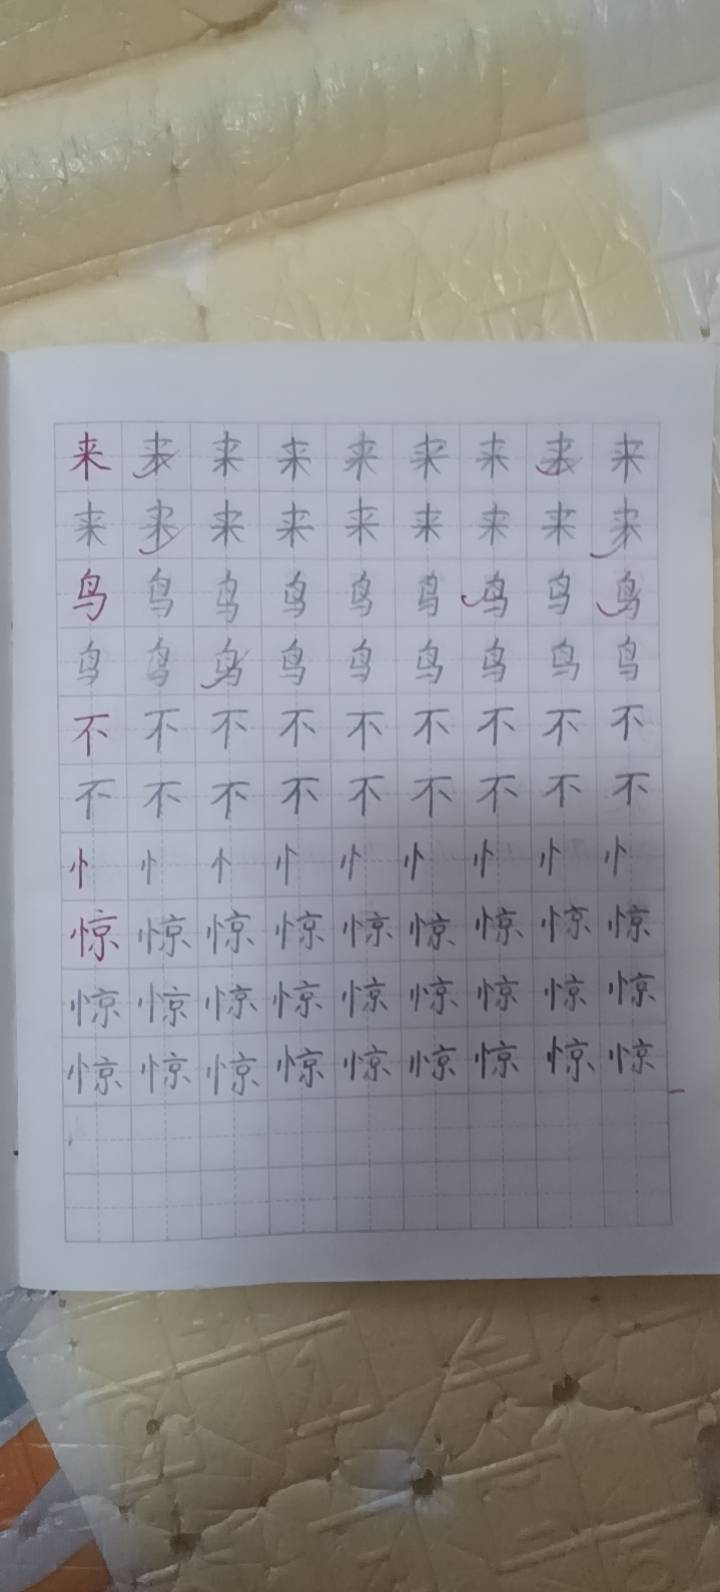 来来来来来来来来来
来来来来来来来来来
鸟鸟鸟鸟鸟鸟鸟鸟鸟
鸟鸟鸟鸟鸟鸟鸟鸟鸟
不不不不不不不不不
不不不不不不不不不
忄忄忄忄忄忄忄忄忄
惊惊惊惊惊惊惊惊惊
惊惊惊惊惊惊惊惊惊
惊惊惊惊惊惊惊惊惊